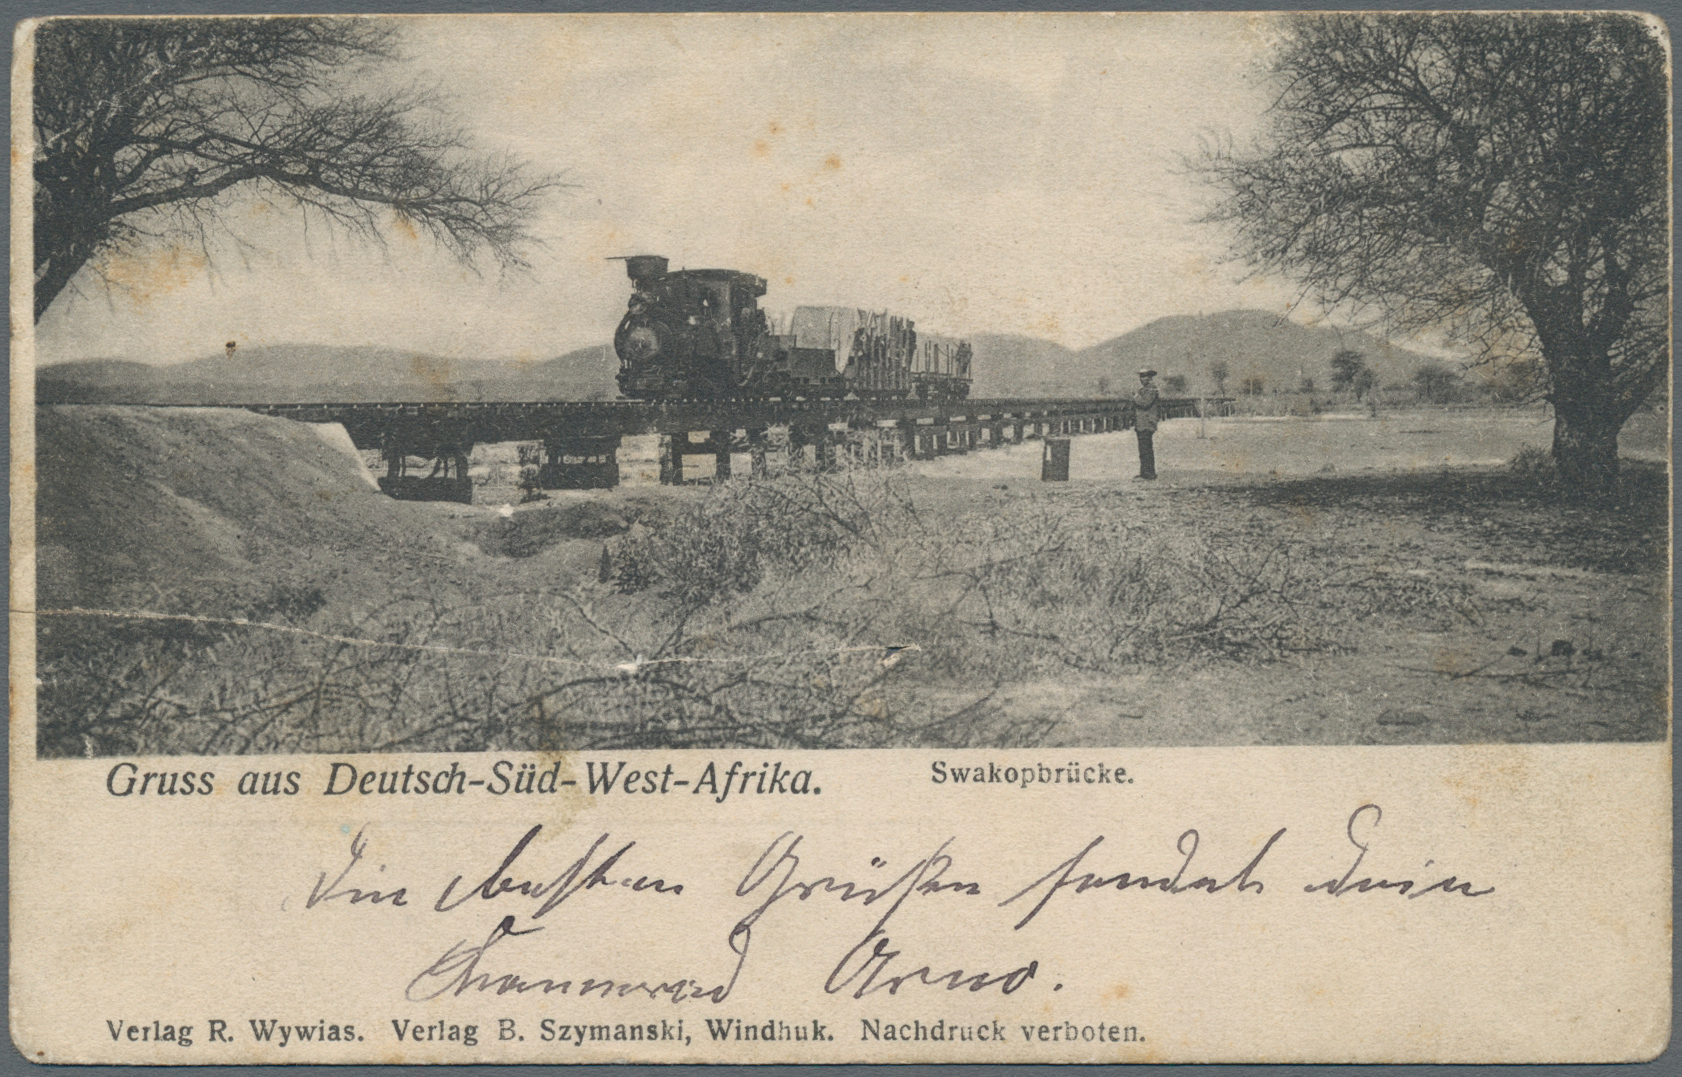 Gruss aus Deutsch-Süd-West-Afrika. Swakopbrücke.
Die besten Grüßen sendet Dein
Arno.
Verlag R. Wywias. Verlag B. Szymanski, Windhuk. Nachdruck verboten.